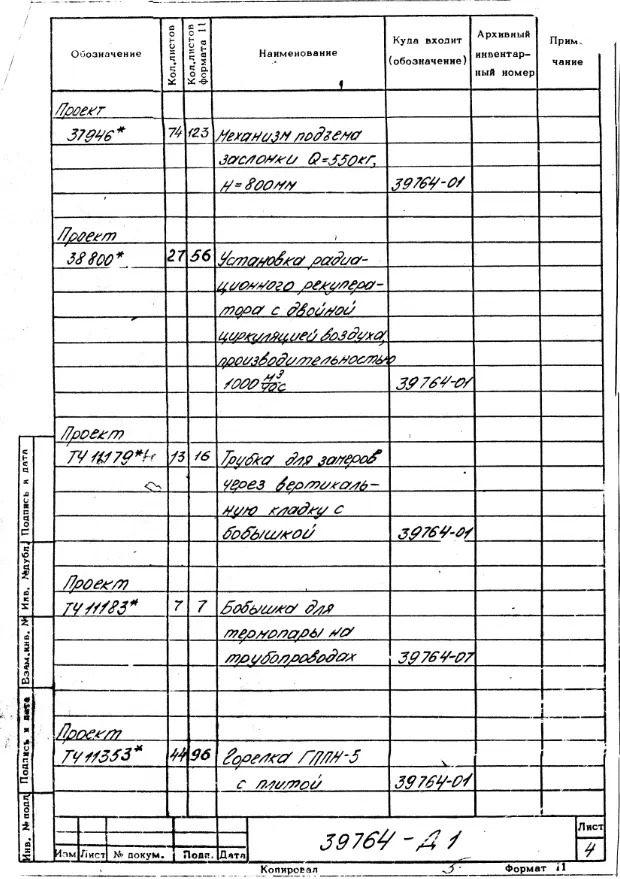 Обозначение Кол.листов Кол.листов формата 11 Наименование Куда входит (обозначение) Архивный инвентар-ный номер Прим. чание
Проект
37946* 74 123 Механизм подъема
заслонки Q=550кг,
H=800мм 39764-01
Проект
38800* 27 56 Установка радиа-
ционного рекупера-
тора с двойной
циркуляцией воздуха,
производительностью
1000 м3/час 39764-01
Проект
ТЧ 11179*н 13 16 Трубка для замеров
через вертикаль-
ную кладку с
бобышкой 39764-01
Проект
ТЧ 11183* 7 7 Бобышка для
термопары на
трубопроводах 39764-07
Проект
ТЧ 11353* 44 96 Горелка ГППН-5
с плитой 39764-01
Инв. № подл Подпись и дата Взам.инв. № Инв. №дубл. Подпись и дата
39764 - Д1
Лист
4
Изм Лист № докум. Подп. Дата
Копировал Формат 11